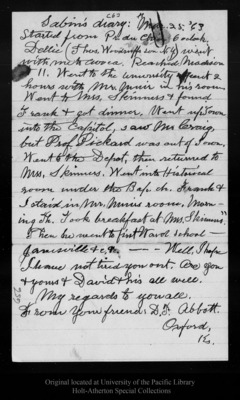 (C&S)
Sabin's diary: Mar. 25. '63
Started from Pr. du Chien 6 oclock.
Dellie (Thos Woodruff's son N.Y) went
with me to Avoca. Reached Madison
11. Went to the university & spent 2
hours with Mr. Muir in his room
Went to Mrs. Skinners & found
Frank & got dinner. Went up Town
into the Capitol, saw Mr Craig,
but Prof Pickard was out of Town.
Went to the Depot, then returned to
Mrs. Skinners. Went into Historical
room under the Bap. ch. Frank &
I staid in Mr. Muirs room. Morn-
ing Th. Took breakfast at Mrs. Skinners"
Then he went to first Ward School
Janesville & c. — — Well, I hope
I have not tired you out. Are you
& yours & David & his all well.
My regards to you all.
From your friend: D.T. Abbott.
Oxford,
Ia.
Original located at University of the Pacific Library
Holt-Atherton Special Collections